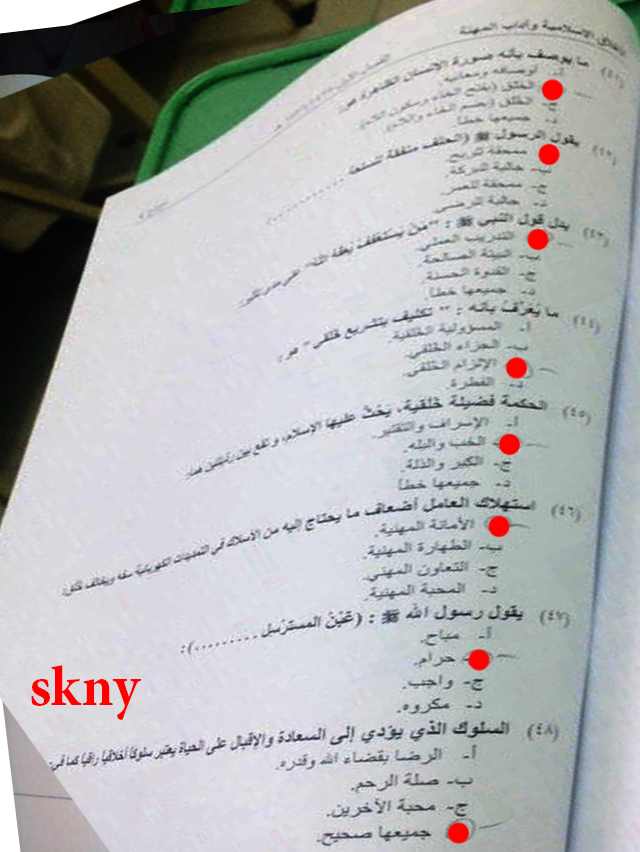 الأخلاق الإسلامية وآداب المهنة
(٤١) ما يوصف بأنه صورة الإنسان الظاهرة هو:
أ- أوصافه ومعانيه.
الخلق (بفتح الخاء وسكون اللام).
ج- الخلق (بضم الخاء واللام).
د- جميعها خطأ.
(٤٢) يقول الرسول ﷺ (الحلف منفقة للسلعة ..........):
ممحقة للربح.
ب- جالبة للبركة.
ج- ممحقة للعمر.
د- جالبة للرضى.
(٤٣) يدل قول النبي ﷺ : "من يستعفف يعفه الله" على
التدريب العملي.
ب- البيئة الصالحة.
ج- القدوة الحسنة.
د- جميعها خطأ.
(٤٤) ما يُعرَّف بأنه : " تكليف بتشريع خلقي" هو:
أ- المسؤولية الخلقية.
ب- الجزاء الخلقي.
الإلزام الخلقي.
د- الفطرة.
(٤٥) الحكمة فضيلة خلقية، يحثّ عليها الإسلام، وتقع بين رذيلتين هما:
أ- الإسراف والتقتير.
الخب والبله.
ج- الكبر والذلة.
د- جميعها خطأ
(٤٦) استهلاك العامل أضعاف ما يحتاج إليه من الأسلاك في التمديدات الكهربائية سفه ويخالف خُلق:
الأمانة المهنية.
ب- الطهارة المهنية.
ج- التعاون المهني.
د- المحبة المهنية.
(٤٧) يقول رسول الله ﷺ : (غَبْنُ المسترْسِل .........):
أ- مباح.
حرام.
ج- واجب.
د- مكروه.
(٤٨) السلوك الذي يؤدي إلى السعادة والإقبال على الحياة يعتبر سلوكاً أخلاقياً راقياً كما في:
أ- الرضا بقضاء الله وقدره.
ب- صلة الرحم.
ج- محبة الآخرين.
جميعها صحيح.
skny